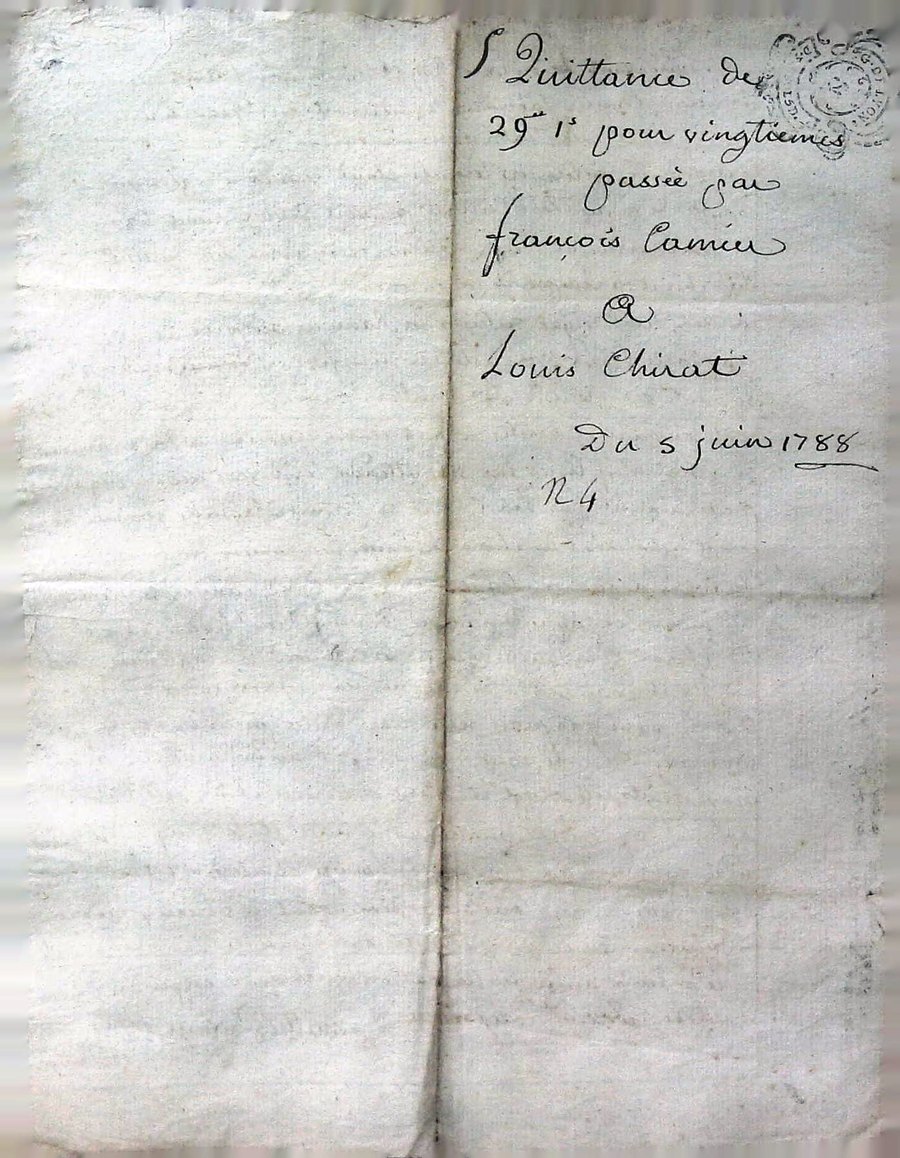 Quittance de
29ᵗᵗ 1ˢ pour vingtiemes
passée par
françois Camier
A
Louis Chirat
Du 5 juin 1788
N 4